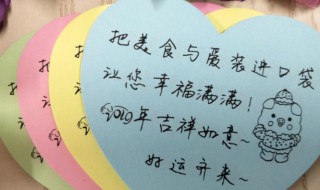 把美食与爱装进口袋
让您幸福满满！
2019年吉祥如意~
好运齐来~